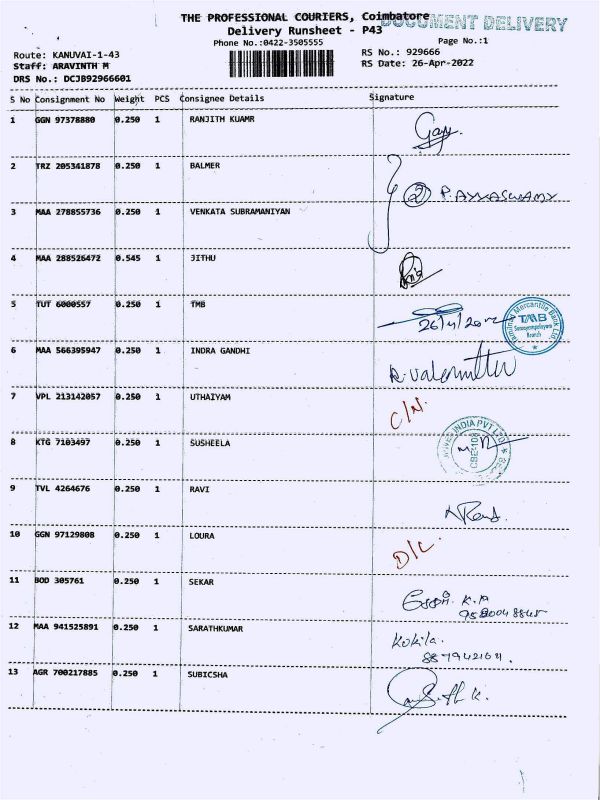 THE PROFESSIONAL COURIERS, Coimbatore
DOCUMENT DELIVERY
Delivery Runsheet - P43
Phone No.:0422-3505555
Page No.:1
Route: KANUVAI-1-43
RS No.: 929666
Staff: ARAVINTH M
RS Date: 26-Apr-2022
DRS No.: DCJB92966601
S No Consignment No Weight PCS Consignee Details Signature
1 GGN 97378880 0.250 1 RANJITH KUAMR
2 TRZ 205341878 0.250 1 BALMER
② P. AYYASWAMY
3 MAA 278855736 0.250 1 VENKATA SUBRAMANIYAN
4 MAA 288526472 0.545 1 JITHU
5 TUT 6000557 0.250 1 TMB
Tamilnad Mercantile Bank Ltd.
TMB
Branch
6 MAA 566395947 0.250 1 INDRA GANDHI
7 VPL 213142057 0.250 1 UTHAIYAM C/N.
8 KTG 7103497 0.250 1 SUSHEELA
INDIA PVT LTD
9 TVL 4264676 0.250 1 RAVI
10 GGN 97129808 0.250 1 LOURA D/L.
11 BOD 305761 0.250 1 SEKAR
12 MAA 941525891 0.250 1 SARATHKUMAR Kokila.
13 AGR 700217885 0.250 1 SUBICSHA